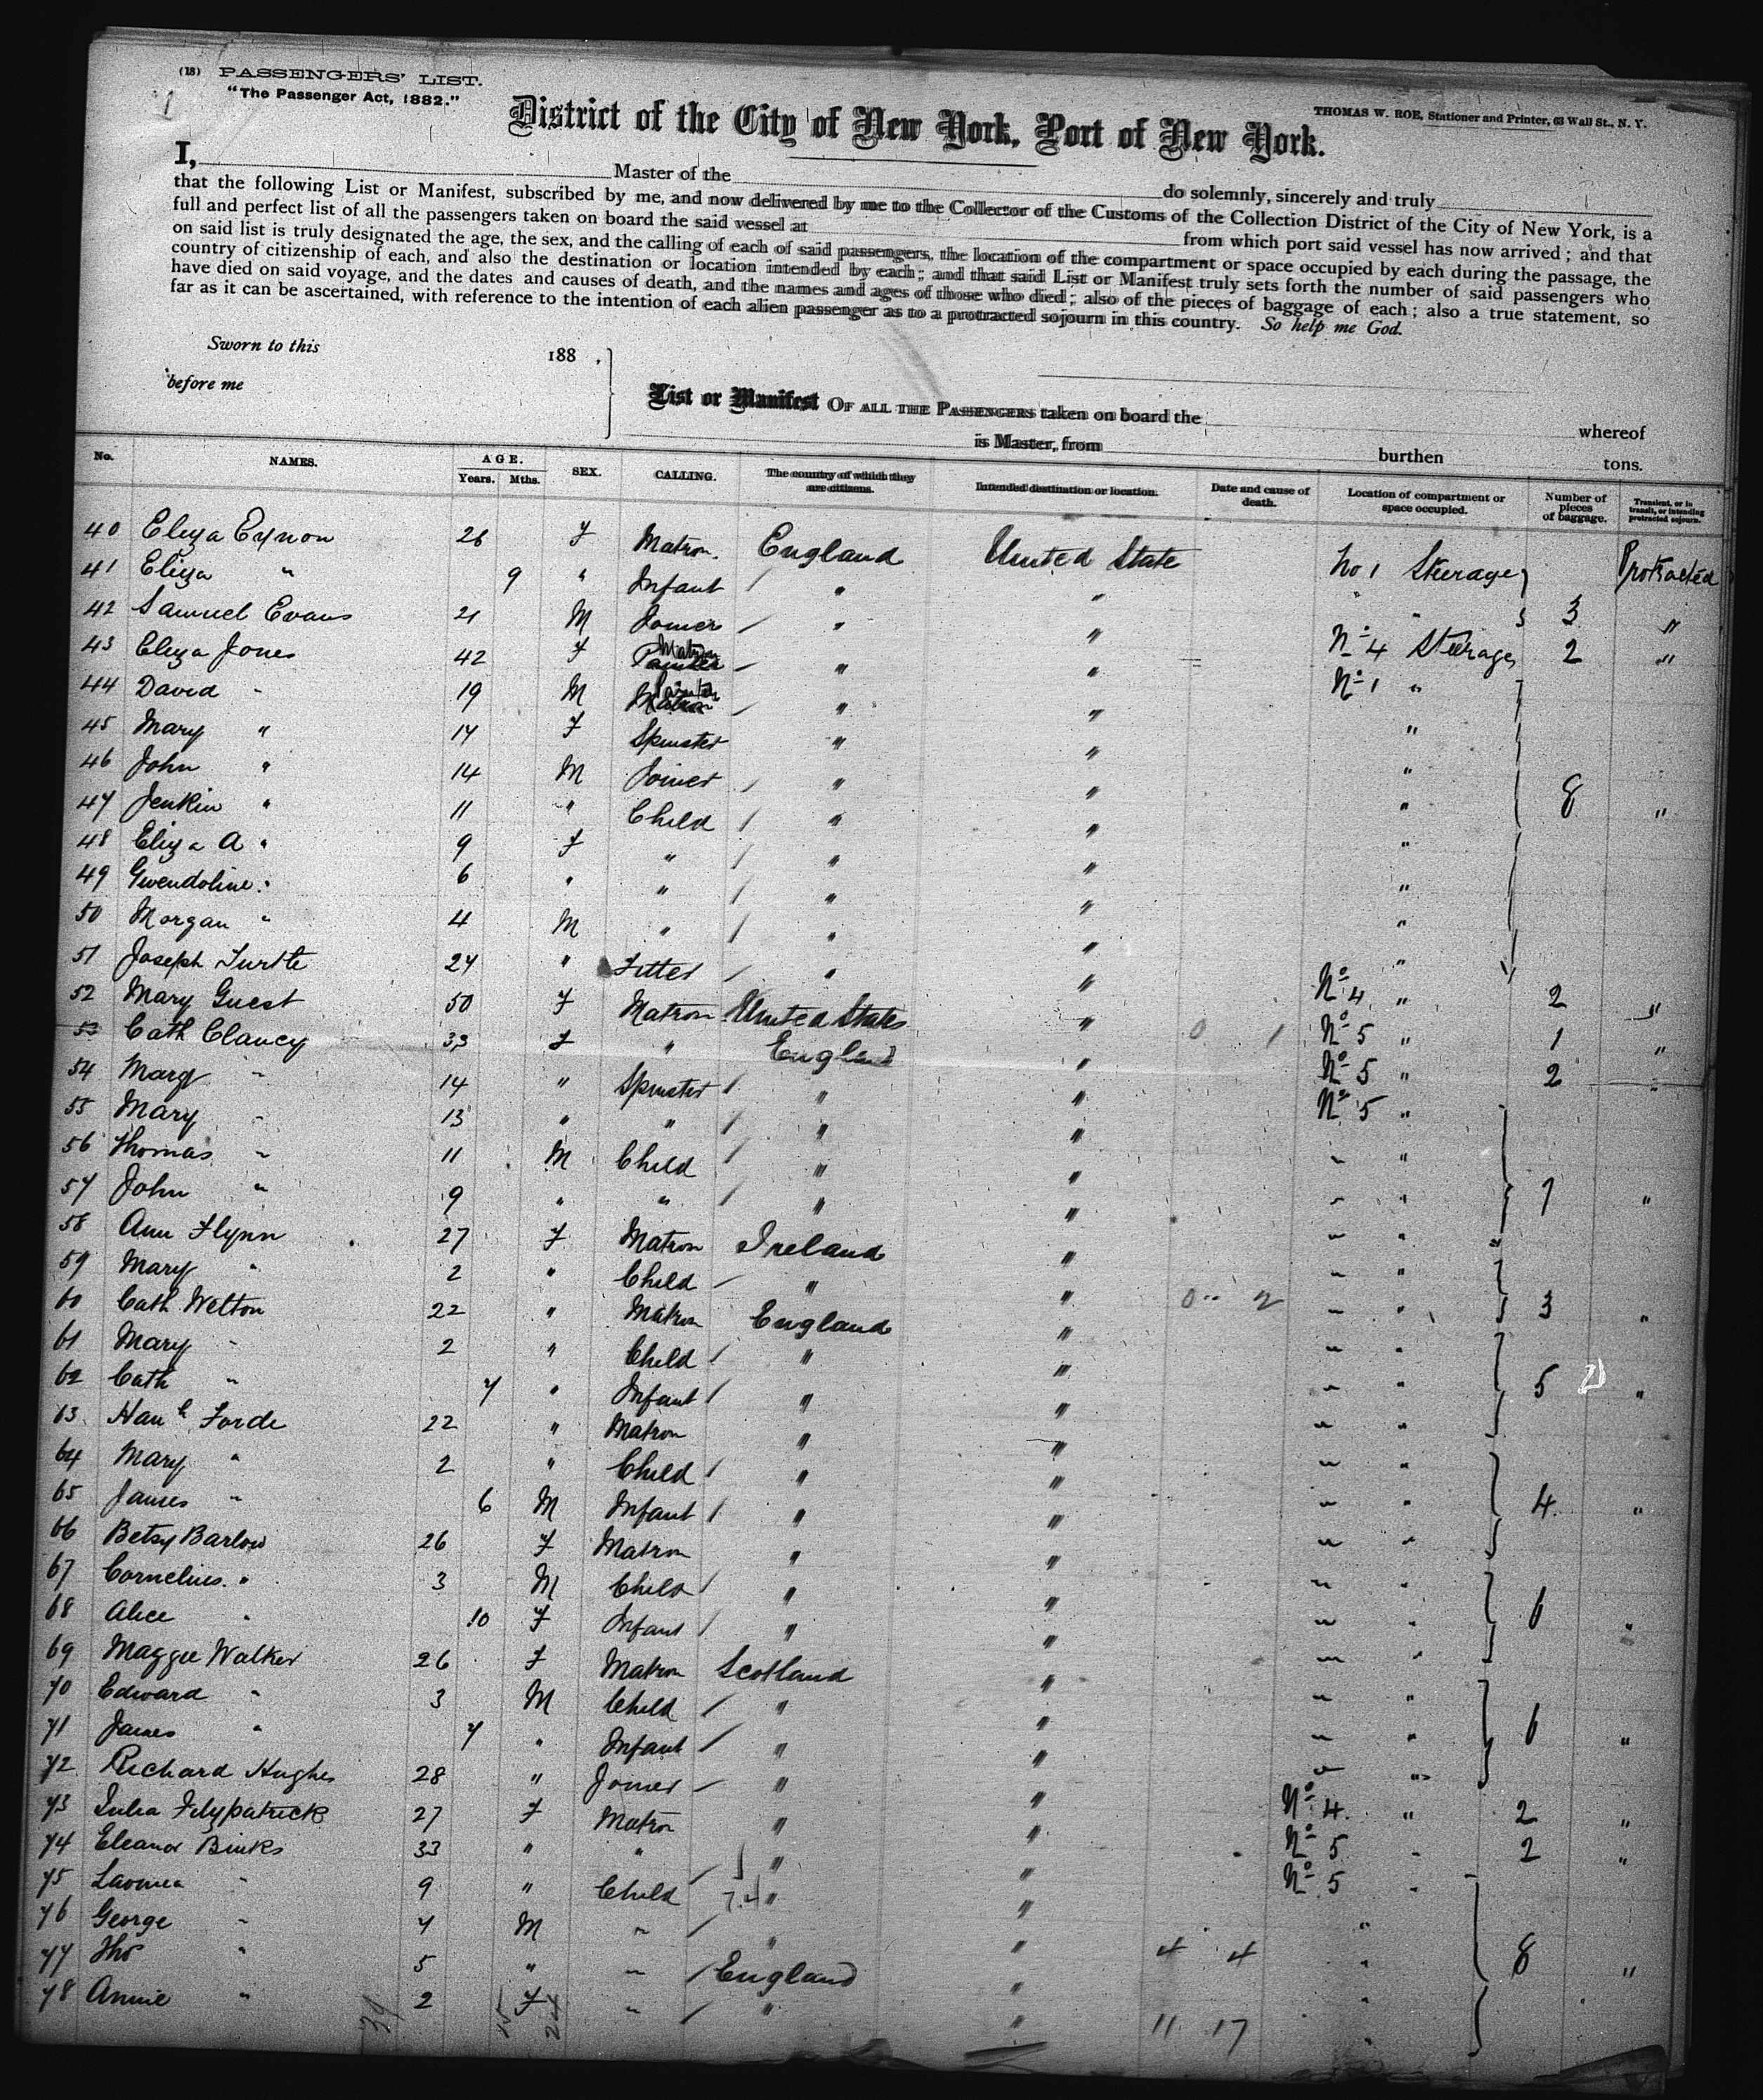 (18) PASSENGERS' LIST.
"The Passenger Act, 1882."
THOMAS W. ROE, Stationer and Printer, 63 Wall St., N. Y.
District of the City of New York, Port of New York.
I, Master of the do solemnly, sincerely and truly
that the following List or Manifest, subscribed by me, and now delivered by me to the Collector of the Customs of the Collection District of the City of New York, is a
full and perfect list of all the passengers taken on board the said vessel at from which port said vessel has now arrived; and that
on said list is truly designated the age, the sex, and the calling of each of said passengers, the location of the compartment or space occupied by each during the passage, the
country of citizenship of each, and also the destination or location intended by each; and that said List or Manifest truly sets forth the number of said passengers who
have died on said voyage, and the dates and causes of death, and the names and ages of those who died; also of the pieces of baggage of each; also a true statement, so
far as it can be ascertained, with reference to the intention of each alien passenger as to a protracted sojourn in this country. So help me God.
Sworn to this 188 .
before me
List or Manifest OF ALL THE PASSENGERS taken on board the whereof
is Master, from burthen tons.
No. NAMES. AGE. Years. Mths. SEX. CALLING. The country of which they are citizens. Intended destination or location. Date and cause of death. Location of compartment or space occupied. Number of pieces of baggage. Transient, or in transit, or intending protracted sojourn.
40 Eliza Eynon 26 F Matron. England United State No 1 Steerage Protracted
41 Eliza " 9 " Infant " " " " 3 "
42 Samuel Evans 21 M Joiner " " No 4 Steerage 2 "
43 Eliza Jones 42 F Matron " " No 1 "
44 David " 19 M Painter " " "
45 Mary " 17 F Spinster " " "
46 John " 14 M Joiner " " " 8 "
47 Jenkin " 11 " Child " " "
48 Eliza A " 9 F " " " "
49 Gwendoline " 6 " " " " "
50 Morgan " 4 M " " " "
51 Joseph Turtle 27 " Fitter " " No 4 " 2 "
52 Mary Guest 50 F Matron United States " 0 1 No 5 " 1 "
53 Cath Clancy 33 F " England " No 5 " 2 "
54 Marg " 14 " Spinster " " No 5 "
55 Mary " 13 " " " " " "
56 Thomas " 11 M Child " " " " 7 "
57 John " 9 " " " " " "
58 Ann Flynn 27 F Matron Ireland " " "
59 Mary " 2 " Child " " 0 2 " " 3 "
60 Cath Welton 22 " Matron England " " "
61 Mary " 2 " Child " " " " 5 "
62 Cath " 7 " Infant " " " "
63 Han h Forde 22 " Matron " " " "
64 Mary " 2 " Child " " " " 4 "
65 James " 6 M Infant " " " "
66 Betsy Barlow 26 F Matron " " " "
67 Cornelius " 3 M Child " " " " 6 "
68 Alice " 10 F Infant " " " "
69 Maggie Walker 26 F Matron Scotland " " "
70 Edward " 3 M Child " " " " 6 "
71 James " 7 " Infant " " " "
72 Richard Hughes 28 " Joiner " " No 4 " 2 "
73 Julia Fitzpatrick 27 F Matron " " No 5 " 2 "
74 Eleanor Binks 33 " " " " No 5 "
75 " 9 " Child " " "
76 George " 7 M " " " 4 4 " 8 "
77 Tho " 5 " " England " "
78 Annie " 2 F " " " 11 17 "
39 15 24